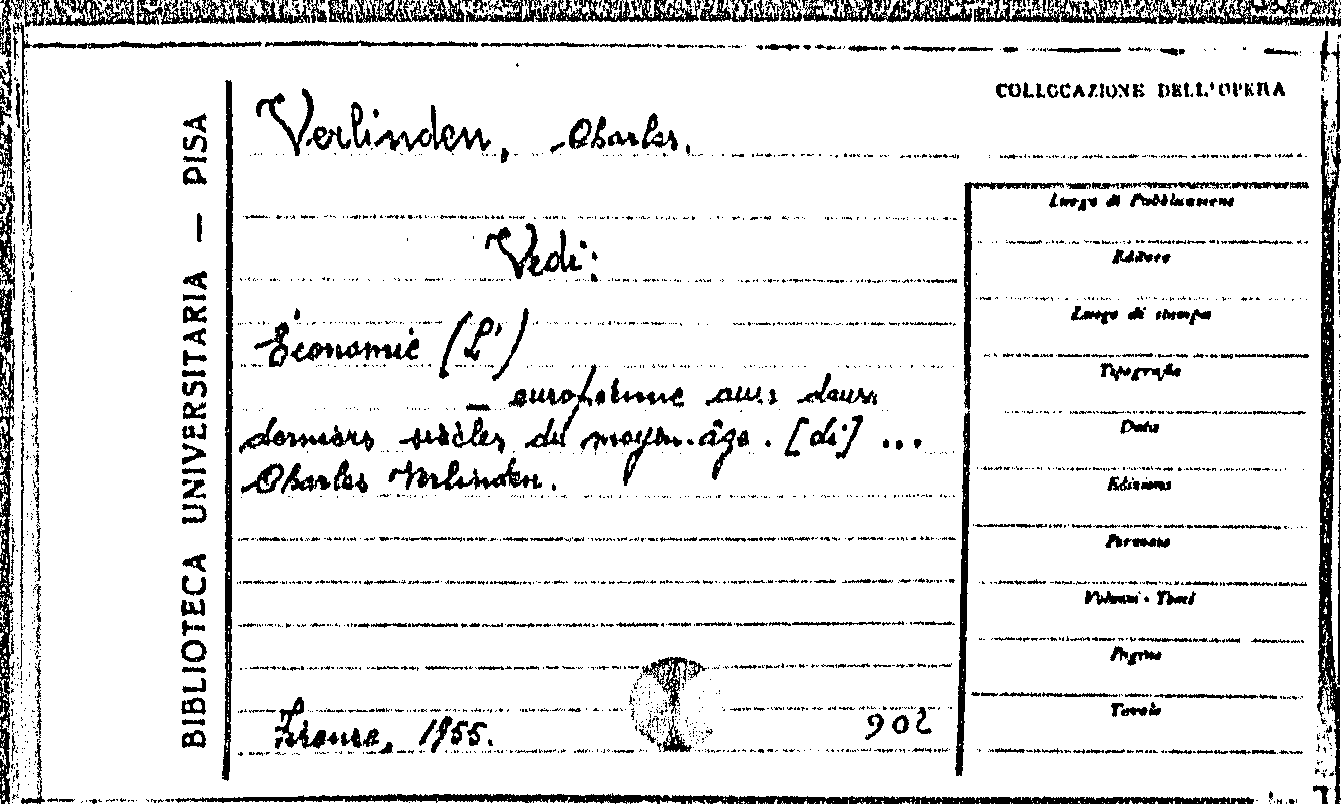 BIBLIOTECA UNIVERSITARIA — PISA
Verlinden, Charles.
Vedi:
Économie (L')
— européenne aux deux
derniers siècles du moyen-âge. [di] ...
Charles Verlinden.
Firenze, 1955.
902
COLLOCAZIONE DELL'OPERA
Luogo di Pubblicazione
Editore
Luogo di stampa
Tipografia
Data
Edizione
Formato
Volumi - Tomi
Pagine
Tavole